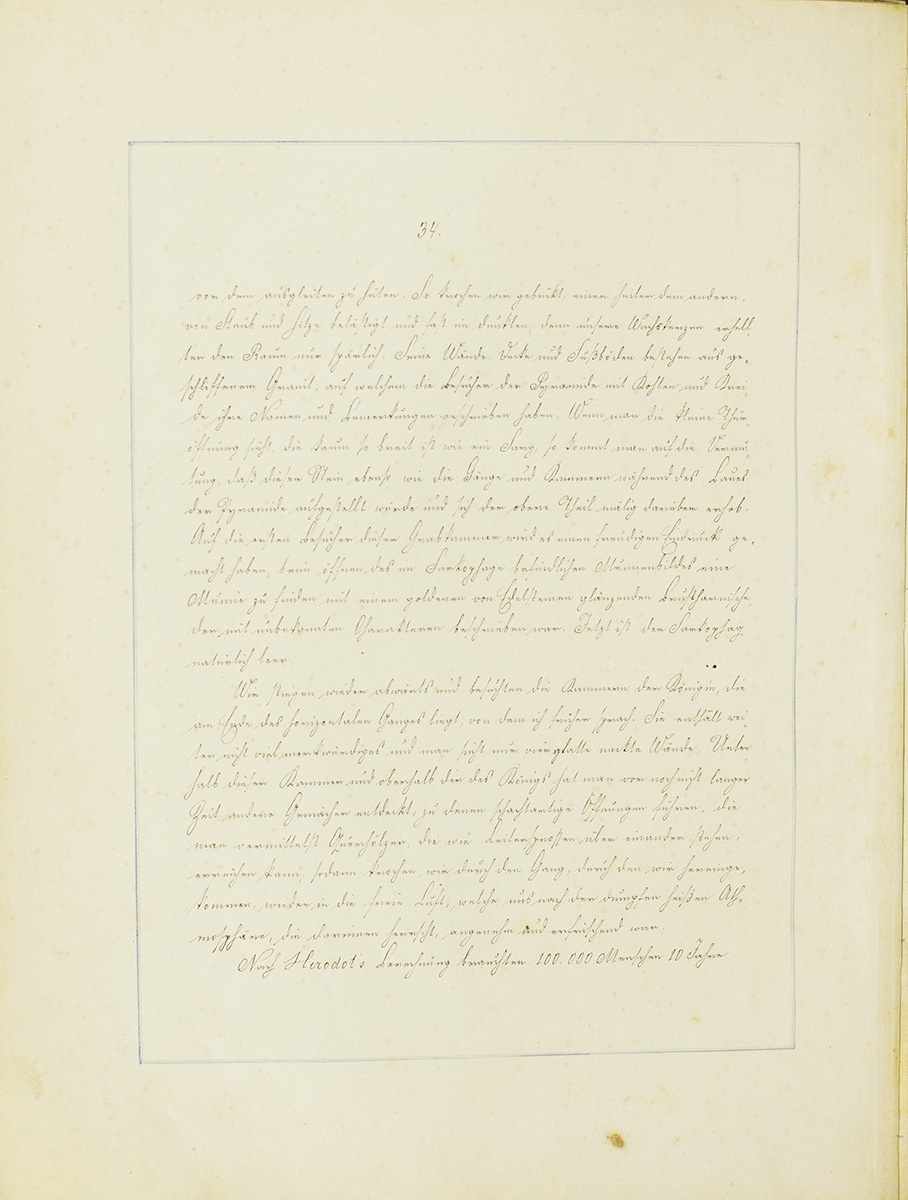 34.
vor dem ausgleiten zu hüten. So krochen wir gebückt, einer hinter dem andern,
von Staub und Hitze belästigt und fast im dunklen, denn unsere Wachskerzen erhell
ten den Raum nur spärlich. Seine Wände, Decke und Fußböden bestehen aus ge-
schliffenem Granit, auf welchem die Besucher der Pyramide mit Kohlen und Krei-
de ihre Namen und Bemerkungen geschrieben haben. Wenn man die kleine Thür-
öffnung sieht, die kaum so breit ist wie ein Sarg, so kommt man auf die Vermu-
tung, daß dieser Stein ebenso wie die Gänge und Kammern während des Baues
der Pyramide aufgestellt wurde und sich der obere Theil mälig darüber erhob.
Auf die ersten Besucher dieser Grabkammer wird es einen freudigen Eindruck ge-
macht haben, beim öffnen des im Sarkophage befindlichen Mumienbildes eine
Mumie zu finden mit einem goldenen von Edelsteinen glänzenden Brustharnische,
der mit unbekannten Charakteren beschrieben war. Jetzt ist der Sarkophag
natürlich leer.
Wir stiegen wieder abwärts und besuchten die Kammern der Königin, die
am Ende des horizontalen Ganges liegt, von dem ich früher sprach. Sie enthält wei-
ter nicht viel merkwürdiges und man sieht nur vier glatte nackte Wände. Unter
halb dieser Kammer und oberhalb der des Königs hat man vor noch nicht langer
Zeit andere Gemächer entdeckt, zu denen schachtartige Öffnungen führen, die
man vermittelst Querhölzer, die wie Leitersprossen über einander stehen,
erreichen kann, sodann krochen wir durch den Gang, durch den wir hereinge-
kommen, wieder in die freie Luft, welche uns nach der dumpfen heißen Ath-
mosphäre, die darinnen herrscht, angenehm und erfrischend war.
Nach Herodots Berechnung brauchten 100.000 Menschen 10 Jahre